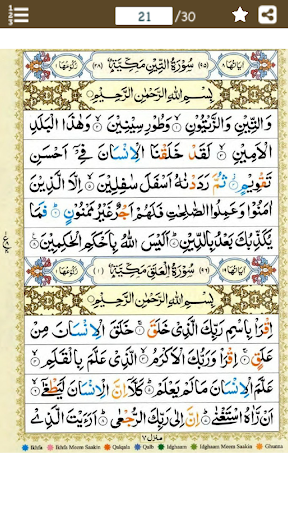 21 /30
اٰيَاتُهَا ٨ (٩٥) سُوْرَةُ التِّيْنِ مَكِّيَّةٌ (٢٨) رُكُوْعُهَا ١
بِسْمِ اللّٰهِ الرَّحْمٰنِ الرَّحِيْمِ
وَالتِّيْنِ وَالزَّيْتُوْنِ ۙ وَطُوْرِ سِيْنِيْنَ ۙ وَهٰذَا الْبَلَدِ
الْاَمِيْنِ ۙ لَقَدْ خَلَقْنَا الْاِنْسَانَ فِيْٓ اَحْسَنِ
تَقْوِيْمٍ ۫ ثُمَّ رَدَدْنٰهُ اَسْفَلَ سٰفِلِيْنَ ۙ اِلَّا الَّذِيْنَ
اٰمَنُوْا وَعَمِلُوا الصّٰلِحٰتِ فَلَهُمْ اَجْرٌ غَيْرُ مَمْنُوْنٍ ؕ فَمَا
يُكَذِّبُكَ بَعْدُ بِالدِّيْنِ ؕ اَلَيْسَ اللّٰهُ بِاَحْكَمِ الْحٰكِمِيْنَ
اٰيَاتُهَا ١٩ (٩٦) سُوْرَةُ الْعَلَقِ مَكِّيَّةٌ (١) رُكُوْعُهَا ١
بِسْمِ اللّٰهِ الرَّحْمٰنِ الرَّحِيْمِ
اِقْرَاْ بِاسْمِ رَبِّكَ الَّذِيْ خَلَقَ ۚ خَلَقَ الْاِنْسَانَ مِنْ
عَلَقٍ ۚ اِقْرَاْ وَرَبُّكَ الْاَكْرَمُ ۙ الَّذِيْ عَلَّمَ بِالْقَلَمِ ۙ
عَلَّمَ الْاِنْسَانَ مَا لَمْ يَعْلَمْ ؕ كَلَّآ اِنَّ الْاِنْسَانَ لَيَطْغٰٓى ۙ
اَنْ رَّاٰهُ اسْتَغْنٰى ؕ اِنَّ اِلٰى رَبِّكَ الرُّجْعٰى ؕ اَرَءَيْتَ الَّذِيْ
منزل ٧
Ikhfa Ikhfa Meem Saakin Qalqala Qalb Idghaam Idghaam Meem Saakin Ghunna